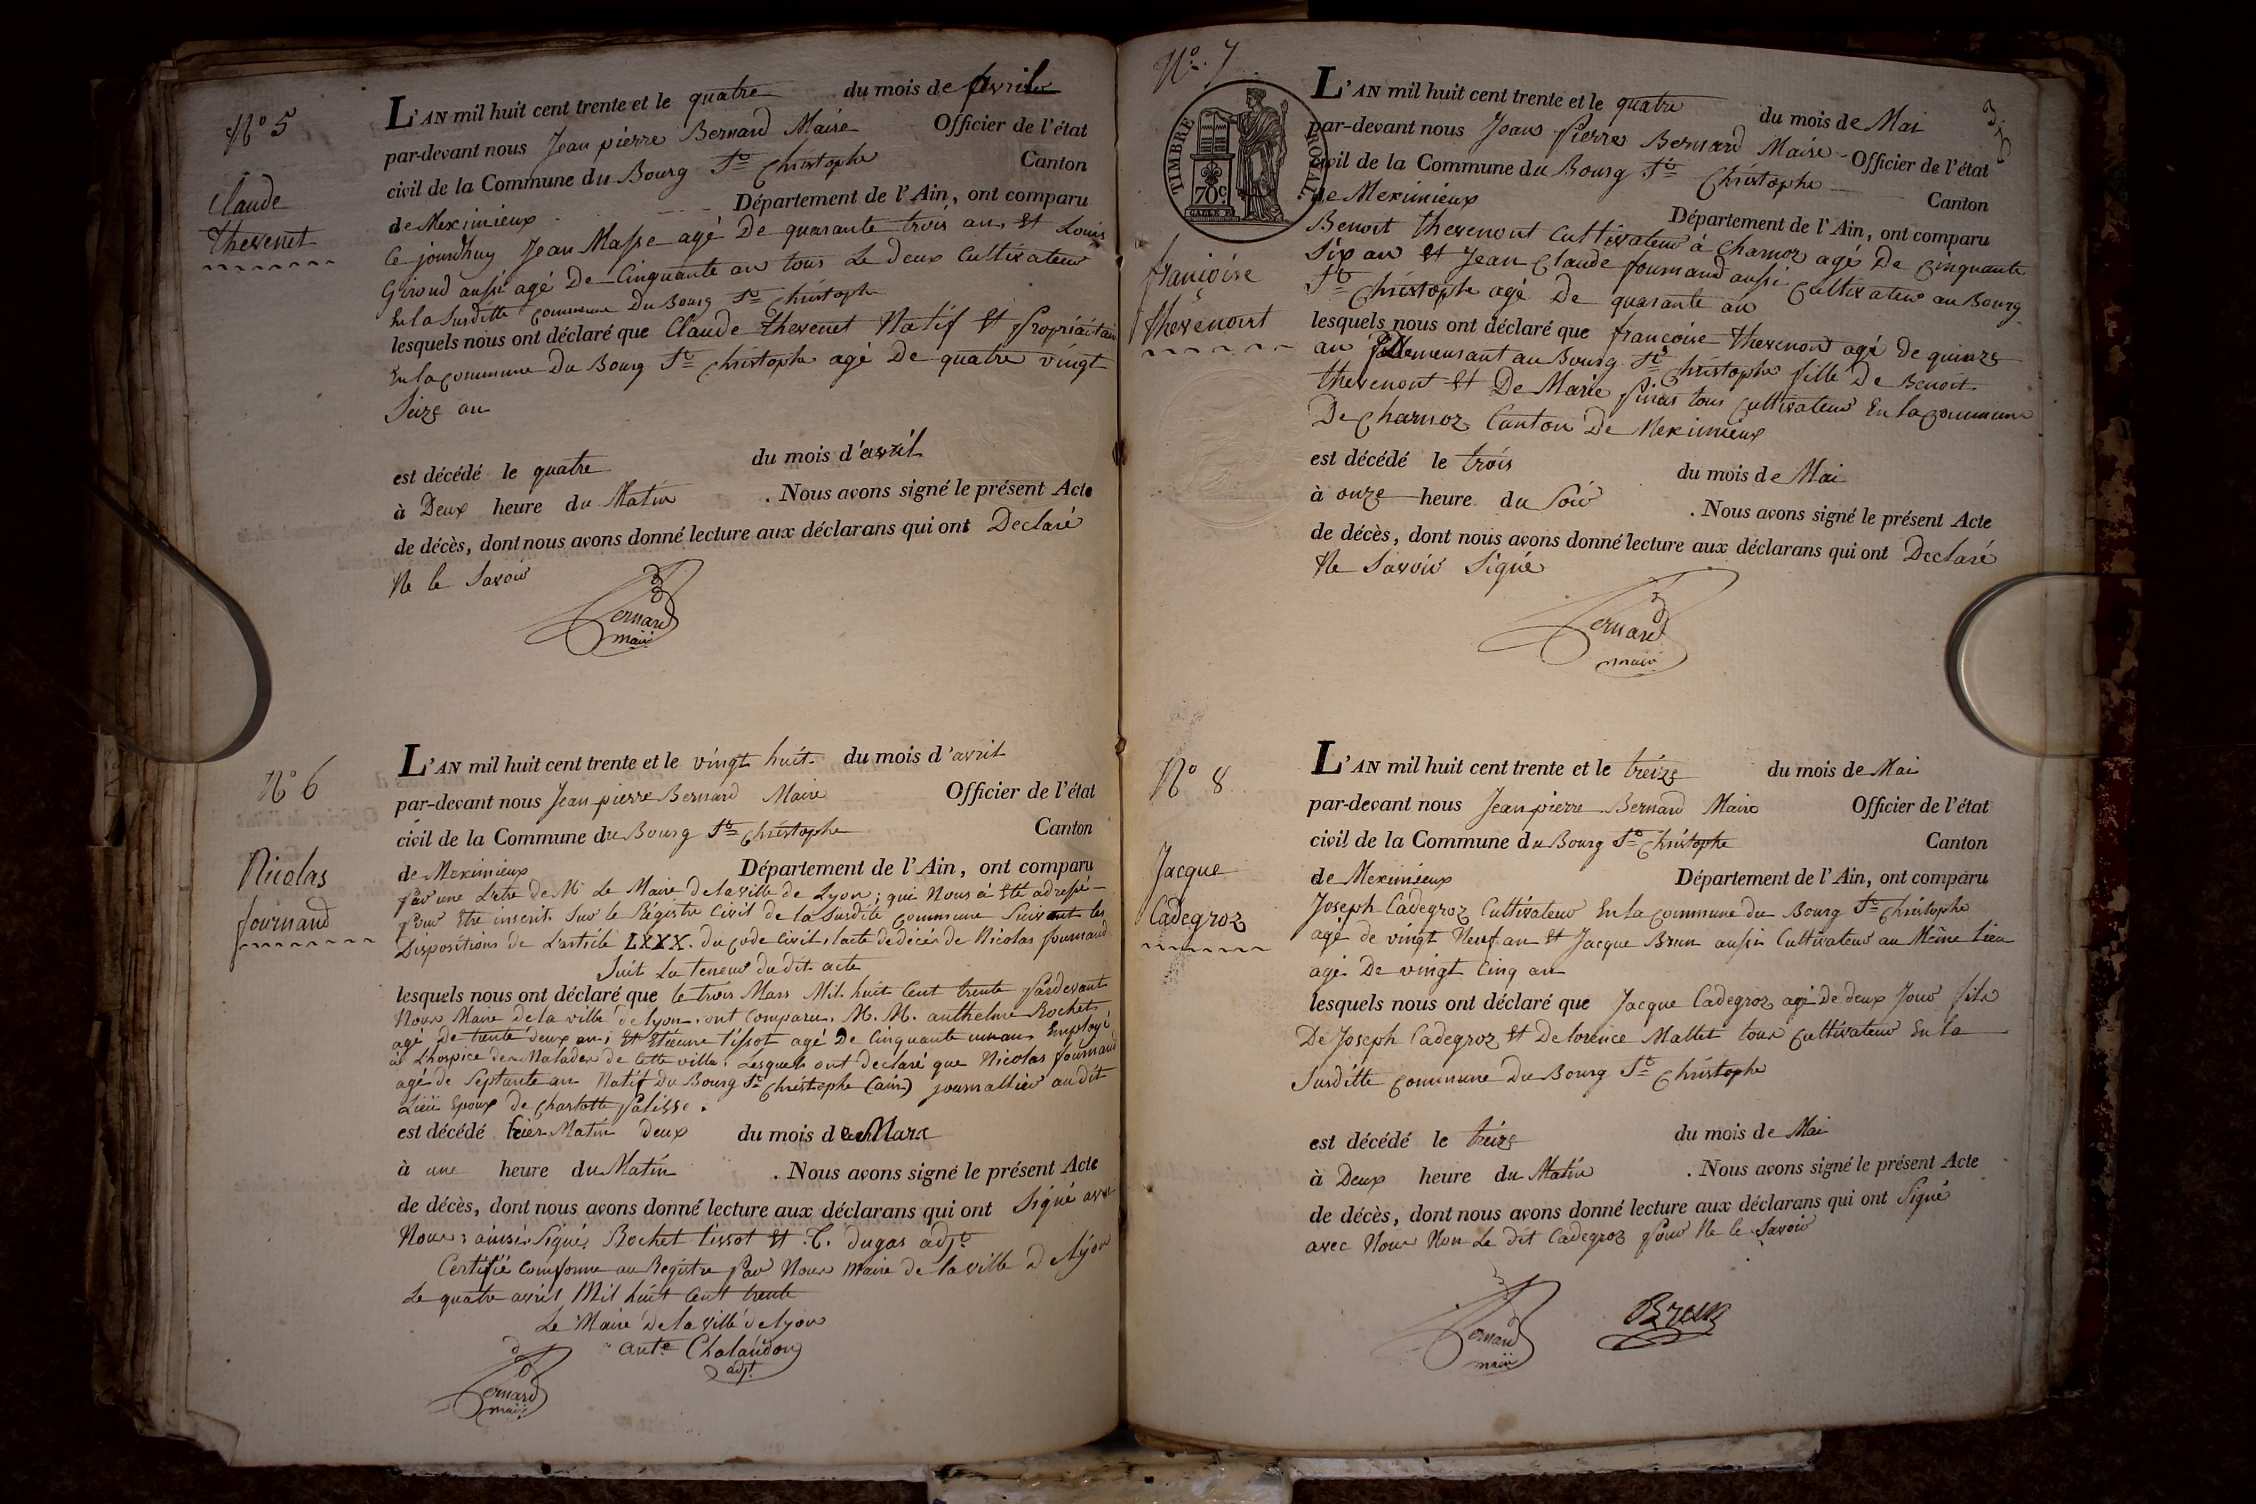 N° 5
Claude
Thevenet
L'AN mil huit cent trente et le quatre du mois de Avril
par-devant nous Jean pierre Bernard Maire Officier de l'état
civil de la Commune du Bourg St Christophe Canton
de Meximieux Département de l'Ain, ont comparu
Ce jourdhuy Jean Masse agé De quarante trois an, Et Louis
Giroud aussi agé De Cinquante an tous Le deux Cultivateur
En la Surditte Commune Du Bourg St Christophe
lesquels nous ont déclaré que Claude Thevenet Natif Et propriaitair
En la Commune Du Bourg St Christophe agé De quatre vingt
Seize an
est décédé le quatre du mois d'avril
à Deux heure du Matin . Nous avons signé le présent Acte
de décès, dont nous avons donné lecture aux déclarans qui ont Declaré
Ne le Savoir
Bernard
maire
N° 6
Nicolas
fournand
L'AN mil huit cent trente et le vingt huit du mois d'avril
par-devant nous Jean pierre Bernard Maire Officier de l'état
civil de la Commune du Bourg St Christophe Canton
de Meximieux Département de l'Ain, ont comparu
Par une Letre de Mr Le Maire de la ville de Lyon; qui Nous à Eté adressé
Pour Etre inscrit Sur le Régistre Civil de la Surdité Commune Suivant les
Dispositions de L'article LXXX. du Code Civil, l'acte de décés de Nicolas fournand
Suit La teneur du dit acte
lesquels nous ont déclaré que le trois Mars Mil huit Cent trente Pardevant
Nous Maire de la ville de lyon, ont Comparu, M. M. anthelme Rochet
agé De trente deux an; Et Etienne tissot agé De Cinquante un an Employé
à L'hospice des Malades de Cette ville, Lesquels ont declaré que Nicolas fournand
agé de Septante an Natif Du Bourg St Christophe (ain) journallier au dit
Lieu Epoux de Charlotte Palisse.
est décédé hier Matin deux du mois de Mars
à une heure du Matin . Nous avons signé le présent Acte
de décès, dont nous avons donné lecture aux déclarans qui ont Signé avec
Nous; ainsi Signé, Rochet tissot Et C. dugas adjt
Certifié Conforme au Registre Par Nous maire de la ville de Lyon
Le quatre avril Mil huit Cent trente
Le Maire de la ville de lyon
ante Chalandon
adjt
Bernard
maire
N° 7
TIMBRE ROYAL
70c
françoise
thevenont
L'AN mil huit cent trente et le quatre du mois de Mai
par-devant nous Jean Pierre Bernard Maire Officier de l'état
civil de la Commune du Bourg St Christophe Canton
de Meximieux Département de l'Ain, ont comparu
Benoit thevenont Cultivateur à Charnoz agé De Cinquante
Six an Et Jean Claude fournand aussi Cultivateur au Bourg
St Christophe agé De quarante an
lesquels nous ont déclaré que françoise thevenont agé de quinze
an Demeurant au Bourg St Christophe fille De Benoit
thevenont Et De Marie Pinas tous Cultivateur En la Commune
De Charnoz Canton De Meximieux
est décédé le trois du mois de Mai
à onze heure du Soir . Nous avons signé le présent Acte
de décès, dont nous avons donné lecture aux déclarans qui ont Declaré
Ne Savoir Signé
Bernard
maire
N° 8
Jacque
Cadegroz
L'AN mil huit cent trente et le treize du mois de Mai
par-devant nous Jean pierre Bernard Maire Officier de l'état
civil de la Commune du Bourg St Christophe Canton
de Meximieux Département de l'Ain, ont comparu
Joseph Cadegroz Cultivateur En la Commune du Bourg St Christophe
agé de vingt Neuf an Et Jacque Brun aussi Cultivateur au Même lieu
agé De vingt Cinq an
lesquels nous ont déclaré que Jacque Cadegroz agé De deux Jour fils
De Joseph Cadegroz Et De lorence Mallet tous Cultivateur En la
Surditte Commune Du Bourg St Christophe
est décédé le treize du mois de Mai
à Deux heure du Matin . Nous avons signé le présent Acte
de décès, dont nous avons donné lecture aux déclarans qui ont Signé
avec Nous Non Le dit Cadegroz Pour Ne le Savoir
Bernard
maire
Brun